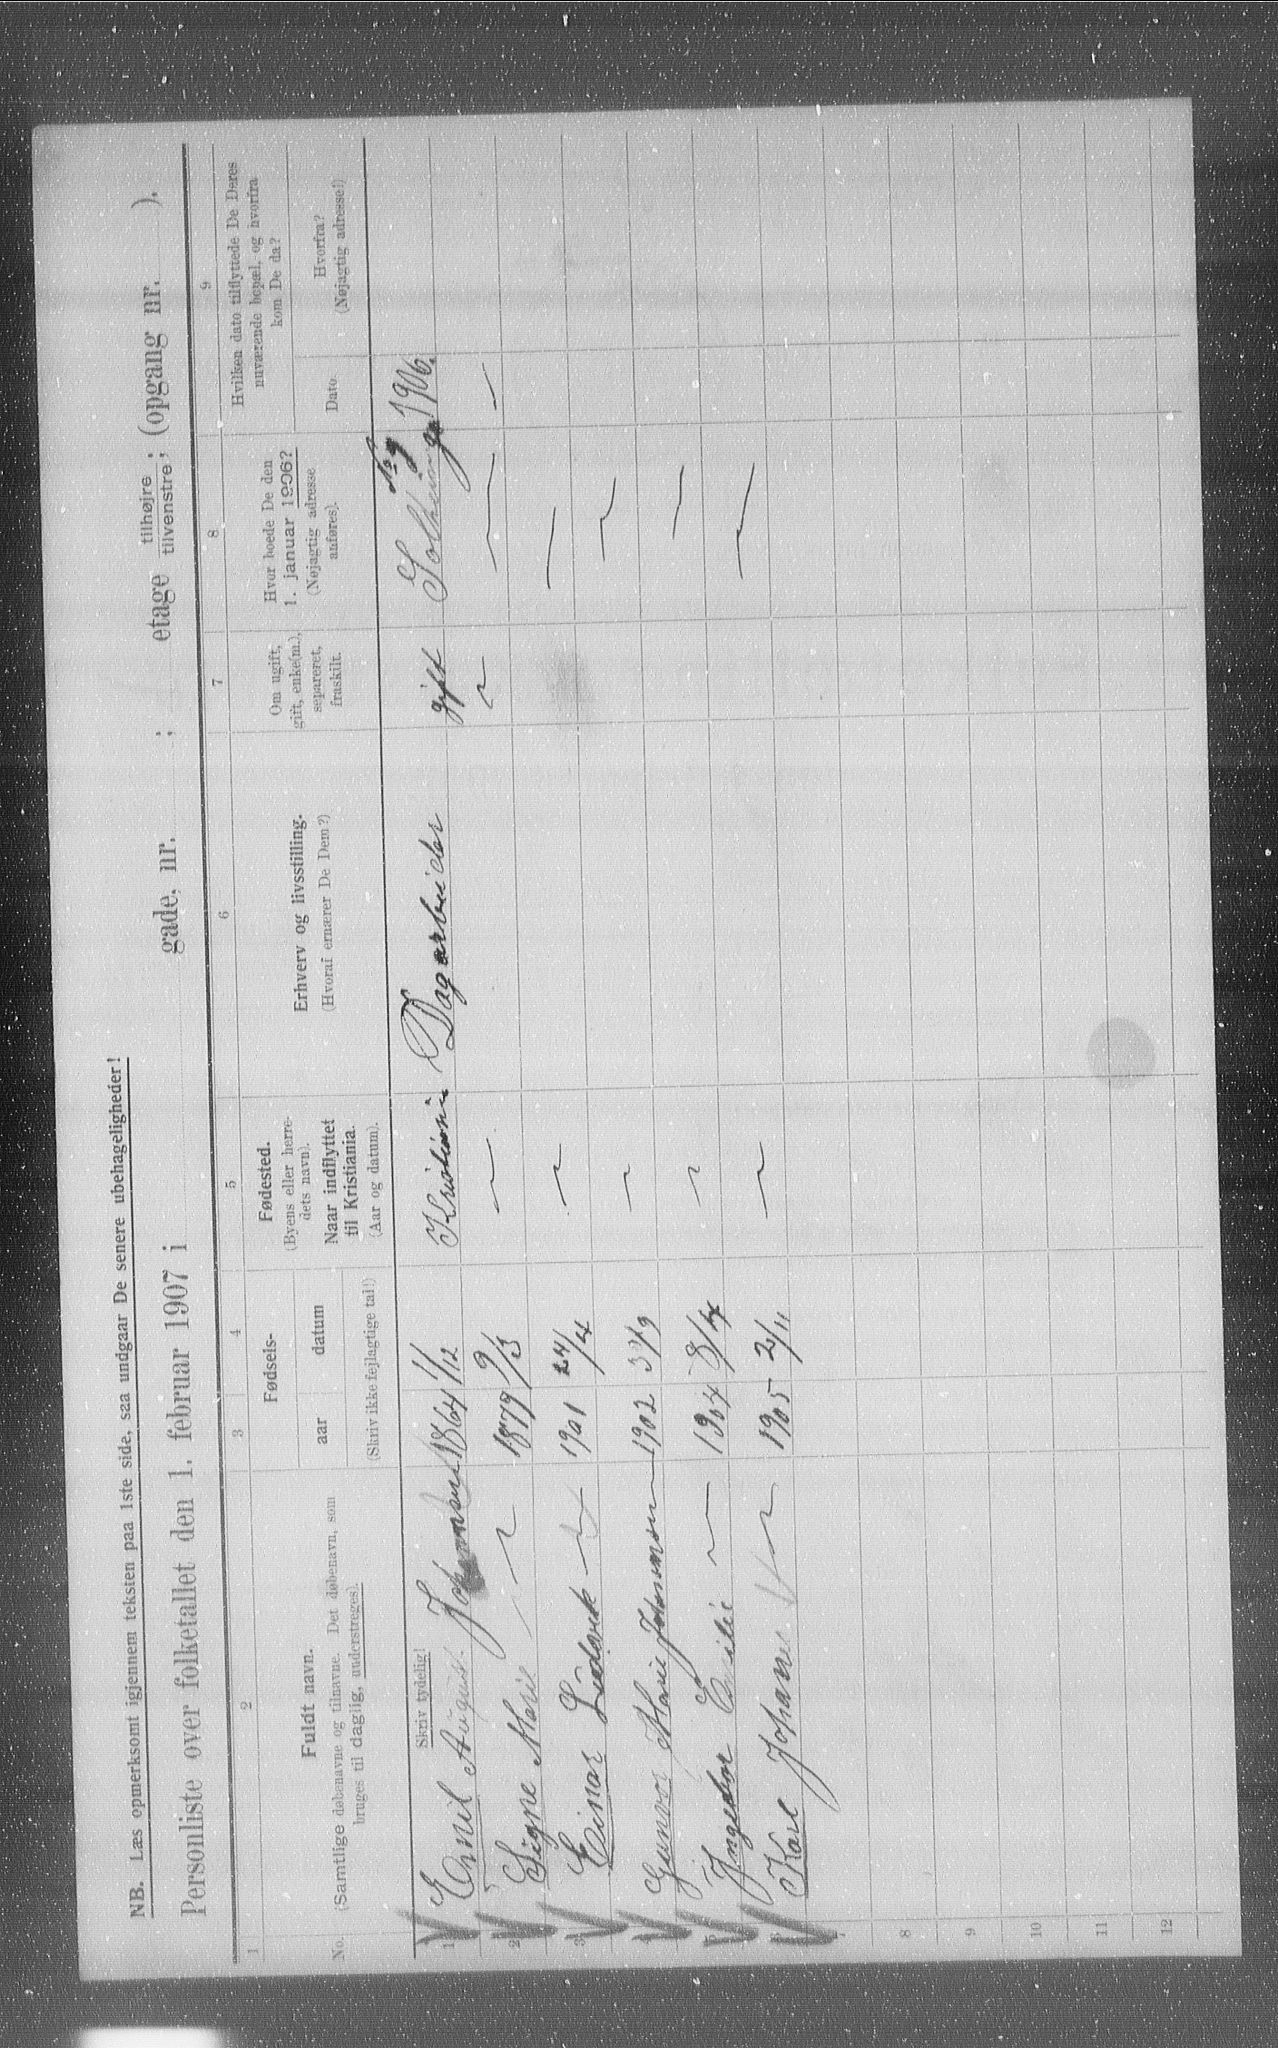 NB. Læs opmerksomt igjennem teksten paa 1ste side, saa undgaar De senere ubehageligheder!
Personliste over folketallet den 1. februar 1907 i gade, nr. ; etage tilhøjre ; tilvenstre ; (opgang nr. ).
1 2 3 4 5 6 7 8 9
No.
Fuldt navn.
(Samtlige døbenavne og tilnavne. Det døbenavn, som
bruges til daglig, understreges).
Fødsels-
aar datum
(Skriv ikke fejlagtige tal!)
Fødested.
(Byens eller herre-
dets navn).
Naar indflyttet
til Kristiania.
(Aar og datum).
Erhverv og livsstilling.
(Hvoraf ernærer De Dem?)
Om ugift,
gift, enke(m.),
separeret,
fraskilt.
Hvor boede De den
1. januar 1906?
(Nøjagtig adresse
anføres).
Hvilken dato tilflyttede De Deres
nuværende bopæl, og hvorfra
kom De da?
Dato.
Hvorfra?
(Nøjagtig adresse!)
Skriv tydelig!
1 Emil August Johannsen 1864 1/12 Kristiania Dagarbeider gift 1906.
2 Signe Marie — 1879 9/3 — — — —
3 Einar Ludvik — 1901 24/4 — —
4 Gunvor Marie Johannsen 1902 3/9 — —
5 — 1904 8/4 — —
6 Karl Johannes — 1905 2/11 — —
7
8
9
10
11
12